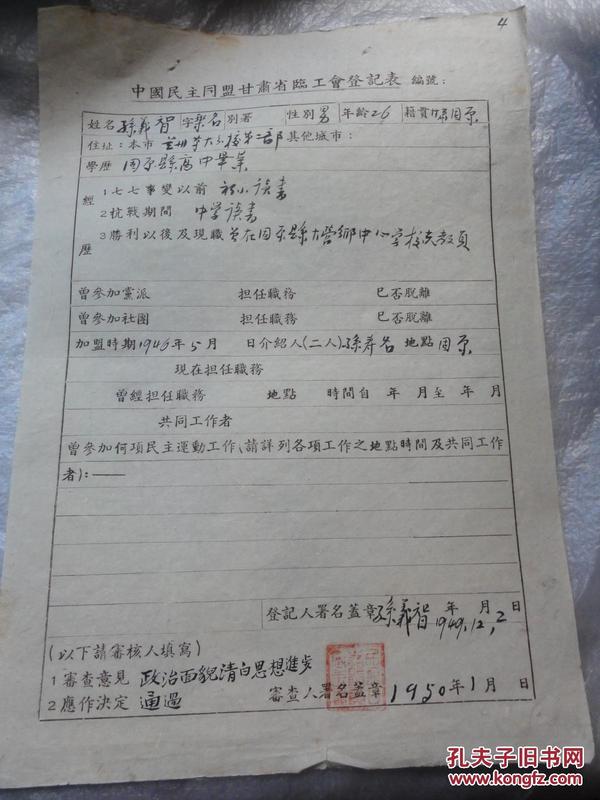 4
中國民主同盟甘肅省臨工會登記表 編號：
姓名 孫義智 字 樂名 別署 性別 男 年齡 26 籍貫 甘肅固原
住址：本市 蘭州 第二部 其他城市：
學歷 固原縣高中畢業
經歷
1 七七事變以前 初小讀書
2 抗戰期間 中学读书
3 勝利以後及現職 曾在固原縣大營鄉中心学校充教員
曾參加黨派 担任職務 已否脫離
曾參加社團 担任職務 已否脫離
加盟時期 1946年5月 日 介紹人(二人) 孫壽名 地點 固原
現在担任職務
曾經担任職務 地點 時間自 年 月至 年 月
共同工作者
曾參加何項民主運動工作、請詳列各項工作之地點時間及共同工作
者)：——
登記人署名蓋章 孫義智 年 月 日
1949.12.2
(以下請審核人填寫)
1 審查意見 政治面貌清白思想進步
2 應作決定 通過 審查人署名蓋章 1950年1月 日
孔夫子旧书网
www.kongfz.com